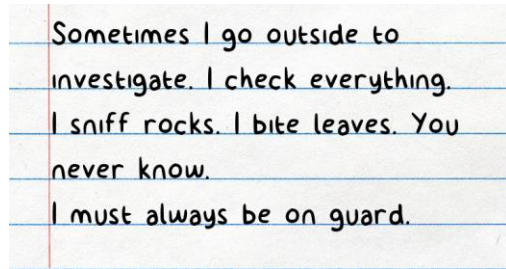 Sometimes I go outside to
investigate. I check everything.
I sniff rocks. I bite leaves. You
never know.
I must always be on guard.